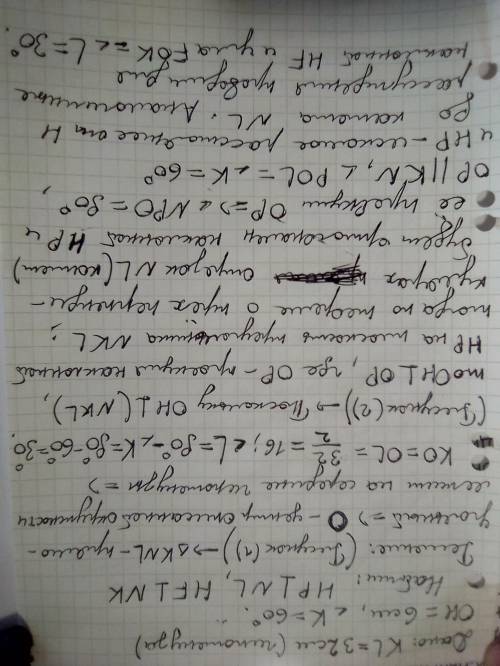 Дано: KL=32см (гипотенуза)
OH=6см, ∠K=60°.
Найти: HP⊥NL, HF⊥NK
Решение: (Рисунок (1)) → ΔKNL - прямо-
угольный => O - центр описанной окружности
лежит на середине гипотенузы =>
KO=OL= 32/2 =16; ∠L=90°-∠K=90°-60°=30°
(Рисунок (2)) → Поскольку OH⊥(NKL),
то OH⊥OP, где OP - проекция наклонной
HP на плоскость треугольника NKL;
тогда по теореме о трех перпенди-
кулярах отрезок NL (катет)
будет ортогонален наклонной HP и
ее проекции OP => ∠NPO=90°,
OP||KN, ∠POL=∠K=60°
и HP - искомое расстояние от H
до катета NL. Аналогичные
рассуждения проводим для
наклонной HF и угла FOK=∠L=30°.